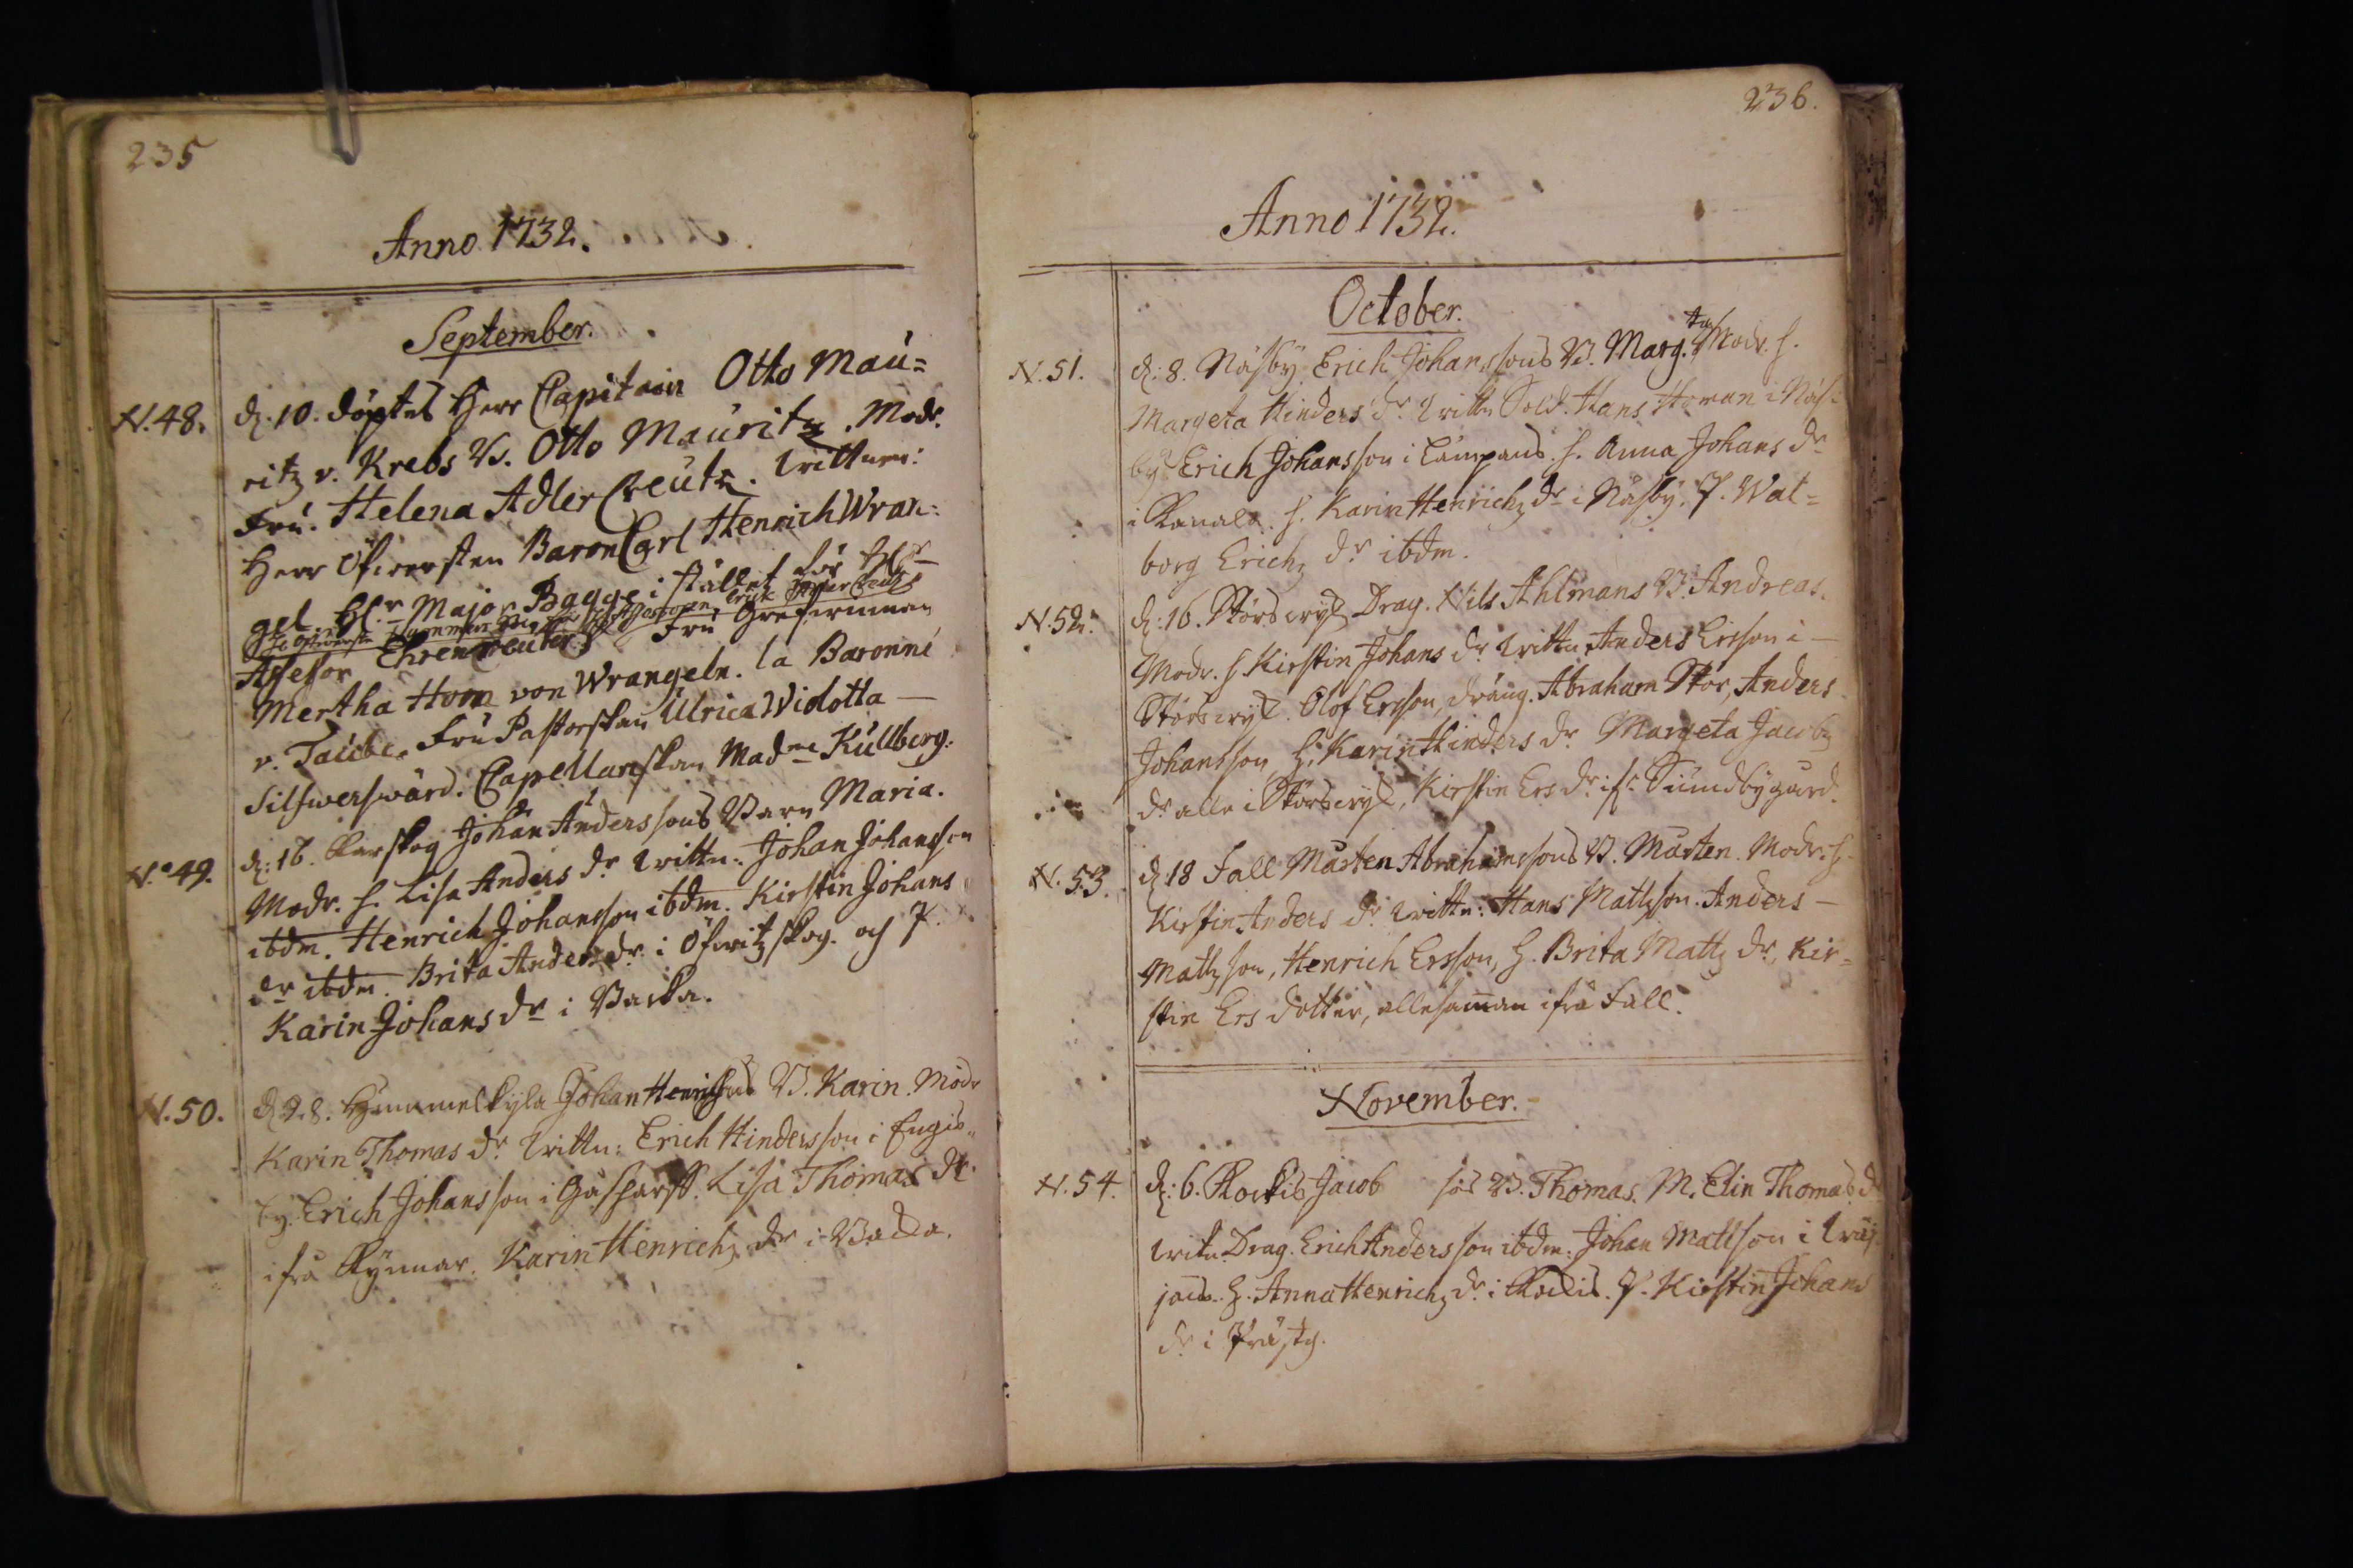 235
Anno 1732.
September.
N. 48. d. 10. döptes Herr Capitain Otto Mau=
ritz v. Krebs B. Otto Mauritz. Modr.
Fru. Helena AdlerCreutz. wittnen:
Herr Öfwersten Baron Carl Henrich Wran:
gel. H:r Major Bagge i stället för H:r
Assessor Ehrenreuter Fru Grefwinnan
Mertha Horn von Wrangeln. la Baronne
v. Taube. Fru Pastorskan Ulrica Widotta
Silfwerswärd. Capellanskan Mad:me Kullberg.
N:o 49. d: 16. Karskog Johan Anderssons Barn Maria.
Modr. h. Lisa Anders dr wittn: Johan Johansson
ibdm. Henrich Johansson ibdm. Kirstin Johans
dr ibdm. Brita Anders dr i Öfwitzskog. och P.
Karin Johans dr i Backa.
N. 50. d 28. Himmelkyla Johan Henrichssons B. Karin. Modr
Karin Thomas dr. wittn: Erich Hindersson i Engis-
by. Erich Johansson i Gåsharff. Lisa Thomas dr.
ifrå Kynnar. Karin Henrichz dr i Backa.
236.
Anno 1732.
October.
N. 51. d: 8. Näsby Erich Johanssons B. Marg.ta Modr. h.
Margeta Hinders dr. wittn Sold. Hans Homan i Näs-
by Erich Johansson i Lampans. h. Anna Johans dr
i Kanala. h. Karin Henrichz dr i Näsby. P. Wal=
borg Erichz dr ibdm.
N. 52. d: 16. Störswyk Drag. Nils Ahlmans B. Andreas.
Modr. h Kirstin Johans dr wittn. Anders Ersson i
Störswyk. Olof Ersson, dräng. Abraham Stör, Anders
Johansson, h. Karin Hinders dr. Margeta Jacobz
dr alla i Störswyk, Kirstin Ers dr. ifr. Sundbygård.
N. 53. d: 18 Fall Mårten Abrahamssons B. Mårten. Modr. h.
Kirstin Anders dr wittn: Hans Mattzson. Anders
Mattzson, Henrich Ersson, h. Brita Mattz dr, Kir=
stin Ers dotter, allesamman ifrå Fall.
November.
N. 54. d: 6. Rockis Jacob sös B. Thomas. M. Elin Thomas dr
witn. Drag. Erich Andersson ibdm: Johan Mattsson i
jans. h. Anna Henrichz dr. i Rockis. P. Kirstin Johans
dr i Prästg.